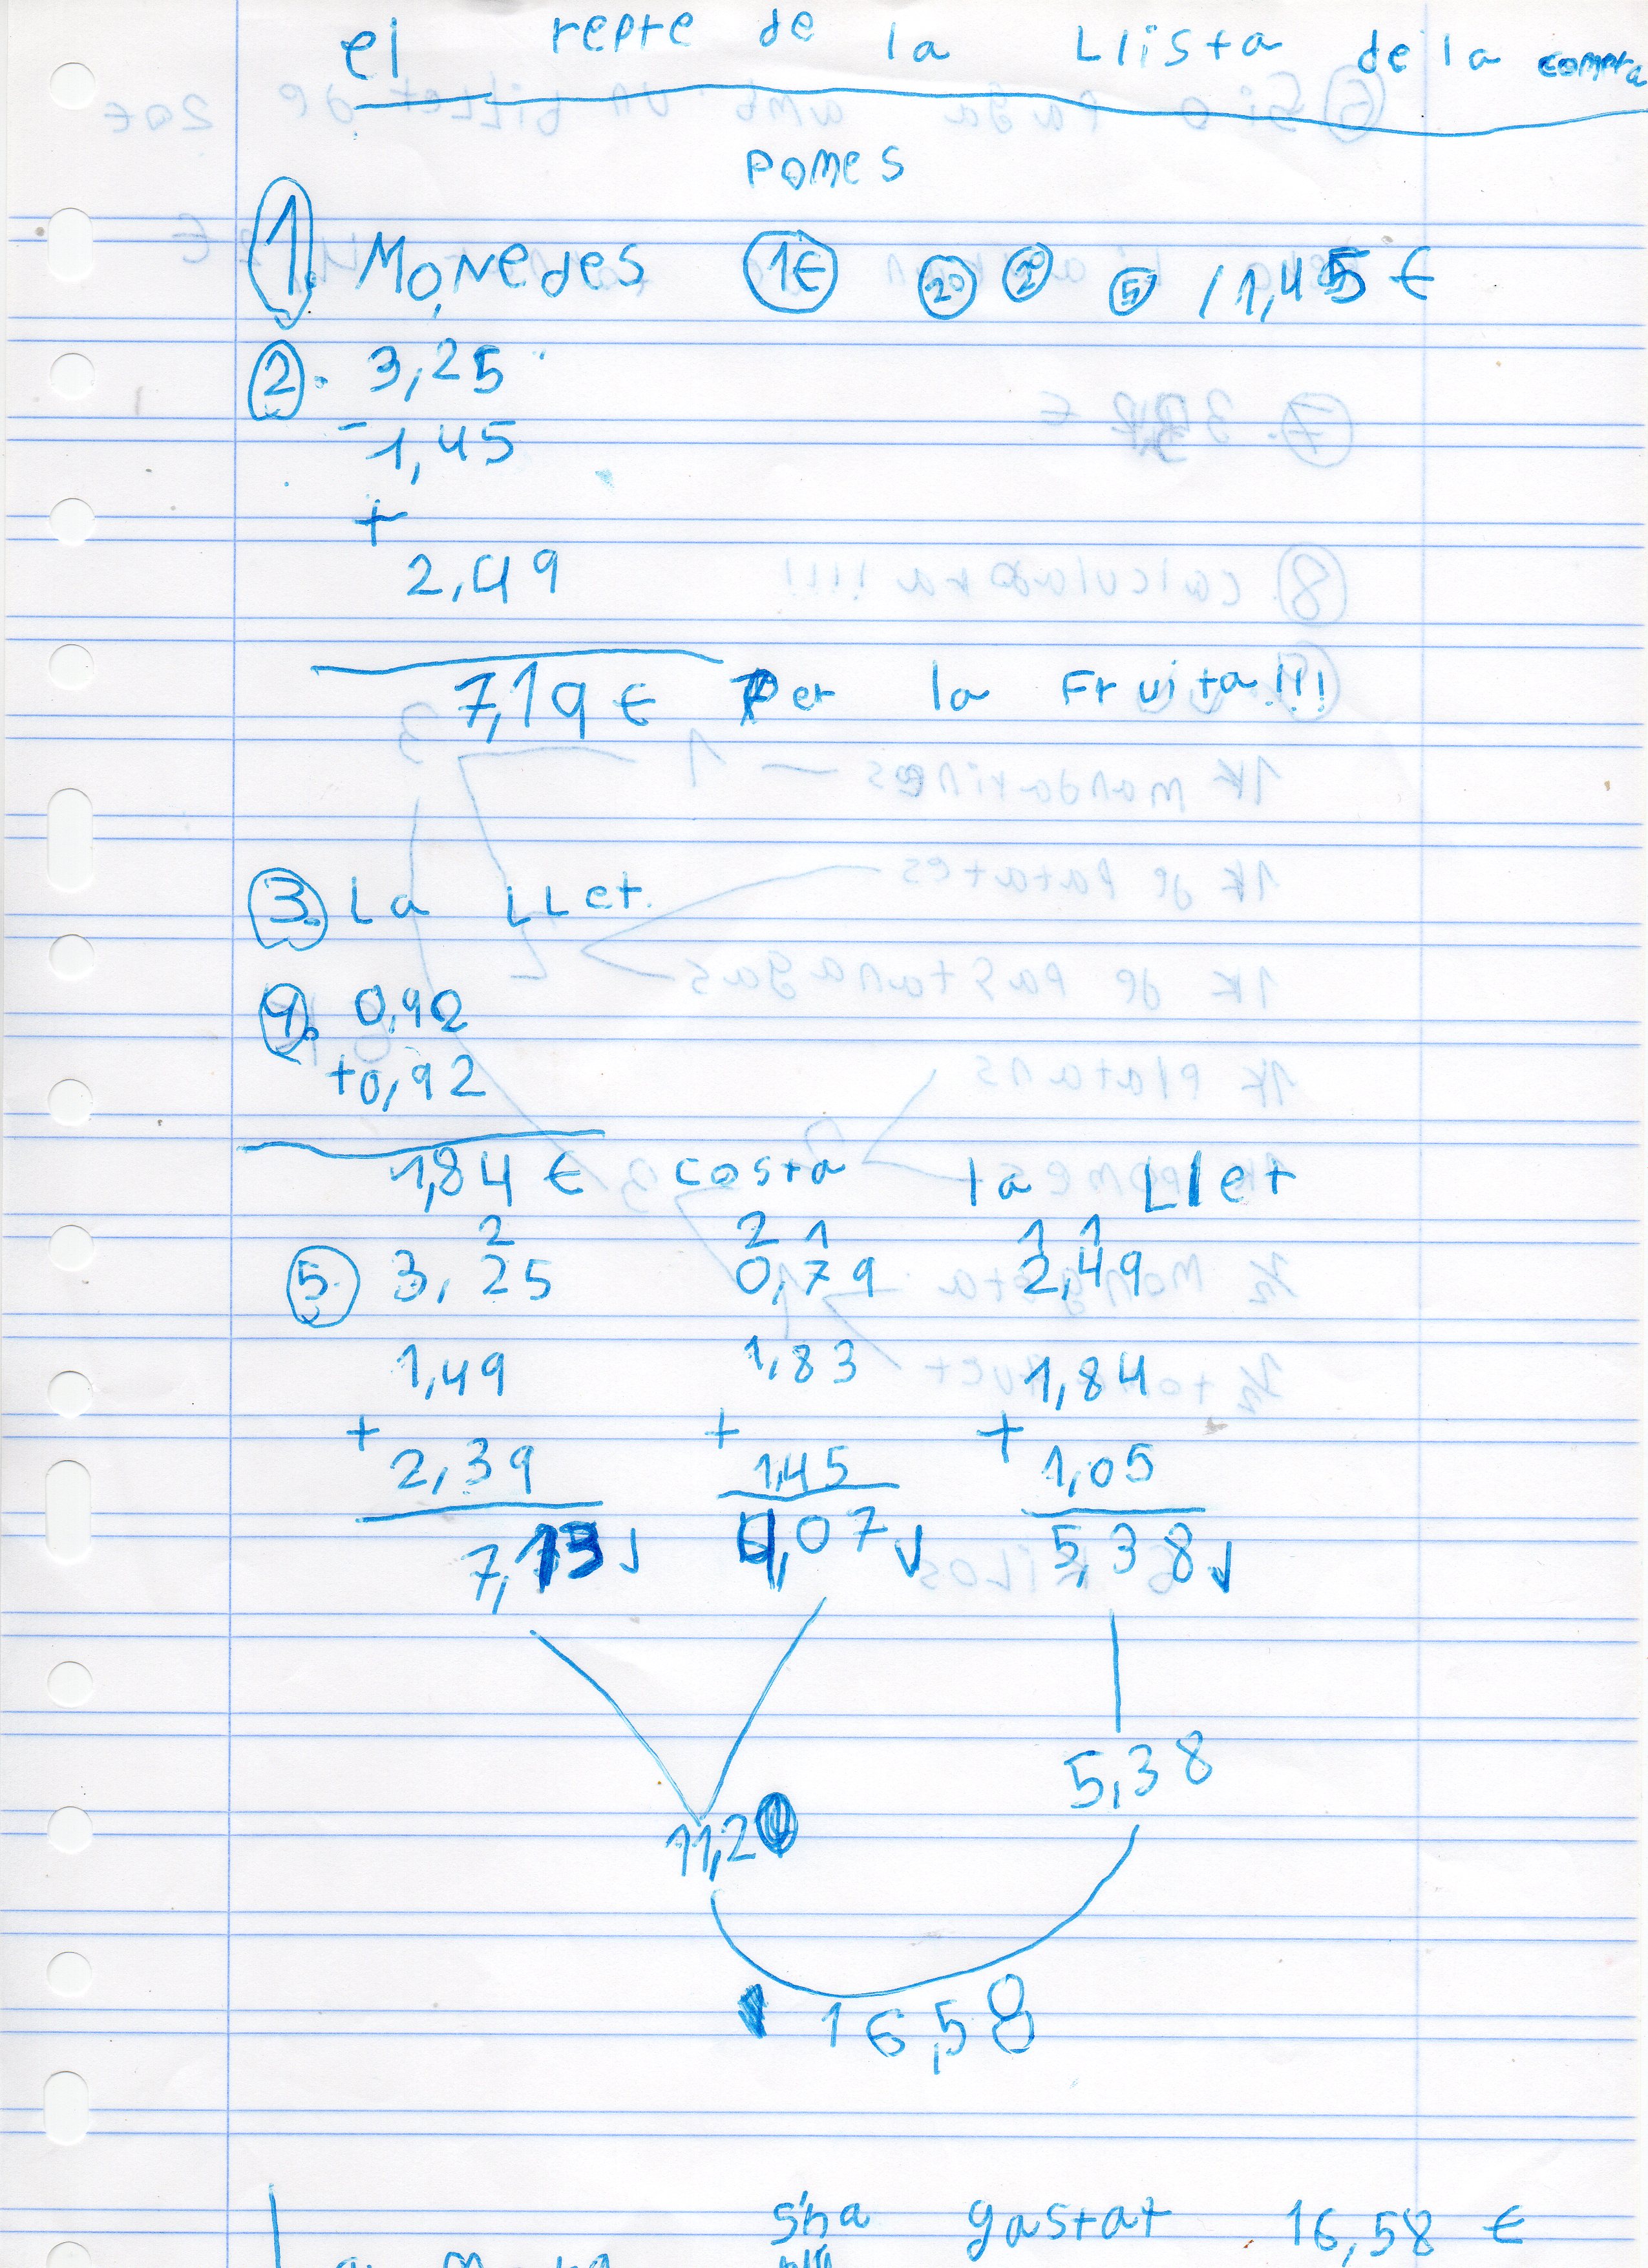 el repte de la Llista de la compra
Pomes
1. Monedes 1€ 20 20 5 / 1,45 €
2. 3,25
- 1,45
+
2,49
7,19 € Per la Fruita!!!
3. La LLet.
4. 0,92
+0,92
1,84 € costa la Llet
2 2 1 1 1
5. 3,25 0,79 2,49
1,49 1,83 1,84
+ + +
2,39 1,45 1,05
7,13 4,07 5,38
5,38
11,20
16,58
s'ha gastat 16,58 €